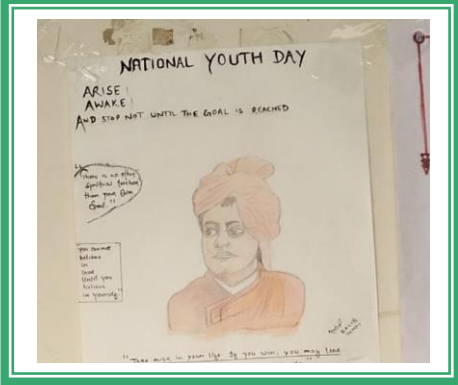 NATIONAL YOUTH DAY
ARISE!
AWAKE!
AND STOP NOT UNTIL THE GOAL IS REACHED
"There is no other
Spiritual teacher
than your Own
Soul."
you cannot
believe
in
God
Until you
believe
in yourself"
"Take risk in your life. If you win, you may lead